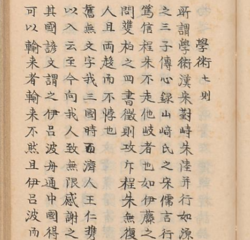 學術七則
所謂學術漢朱對峙朱陸并行如源
之三子傳心錄山崎氏之宋儒言行
篤信程朱不走他岐者也如伊藤之
問雙柏之四書徵則攻斥程朱無復
人且兩趨而不悖也
舊無文字我三國時百濟人王仁携
以入云至今向我人致無限感謝之
其國諺文謂之伊呂波毎通中國得
可以輸來者輸來不然且伊呂波而